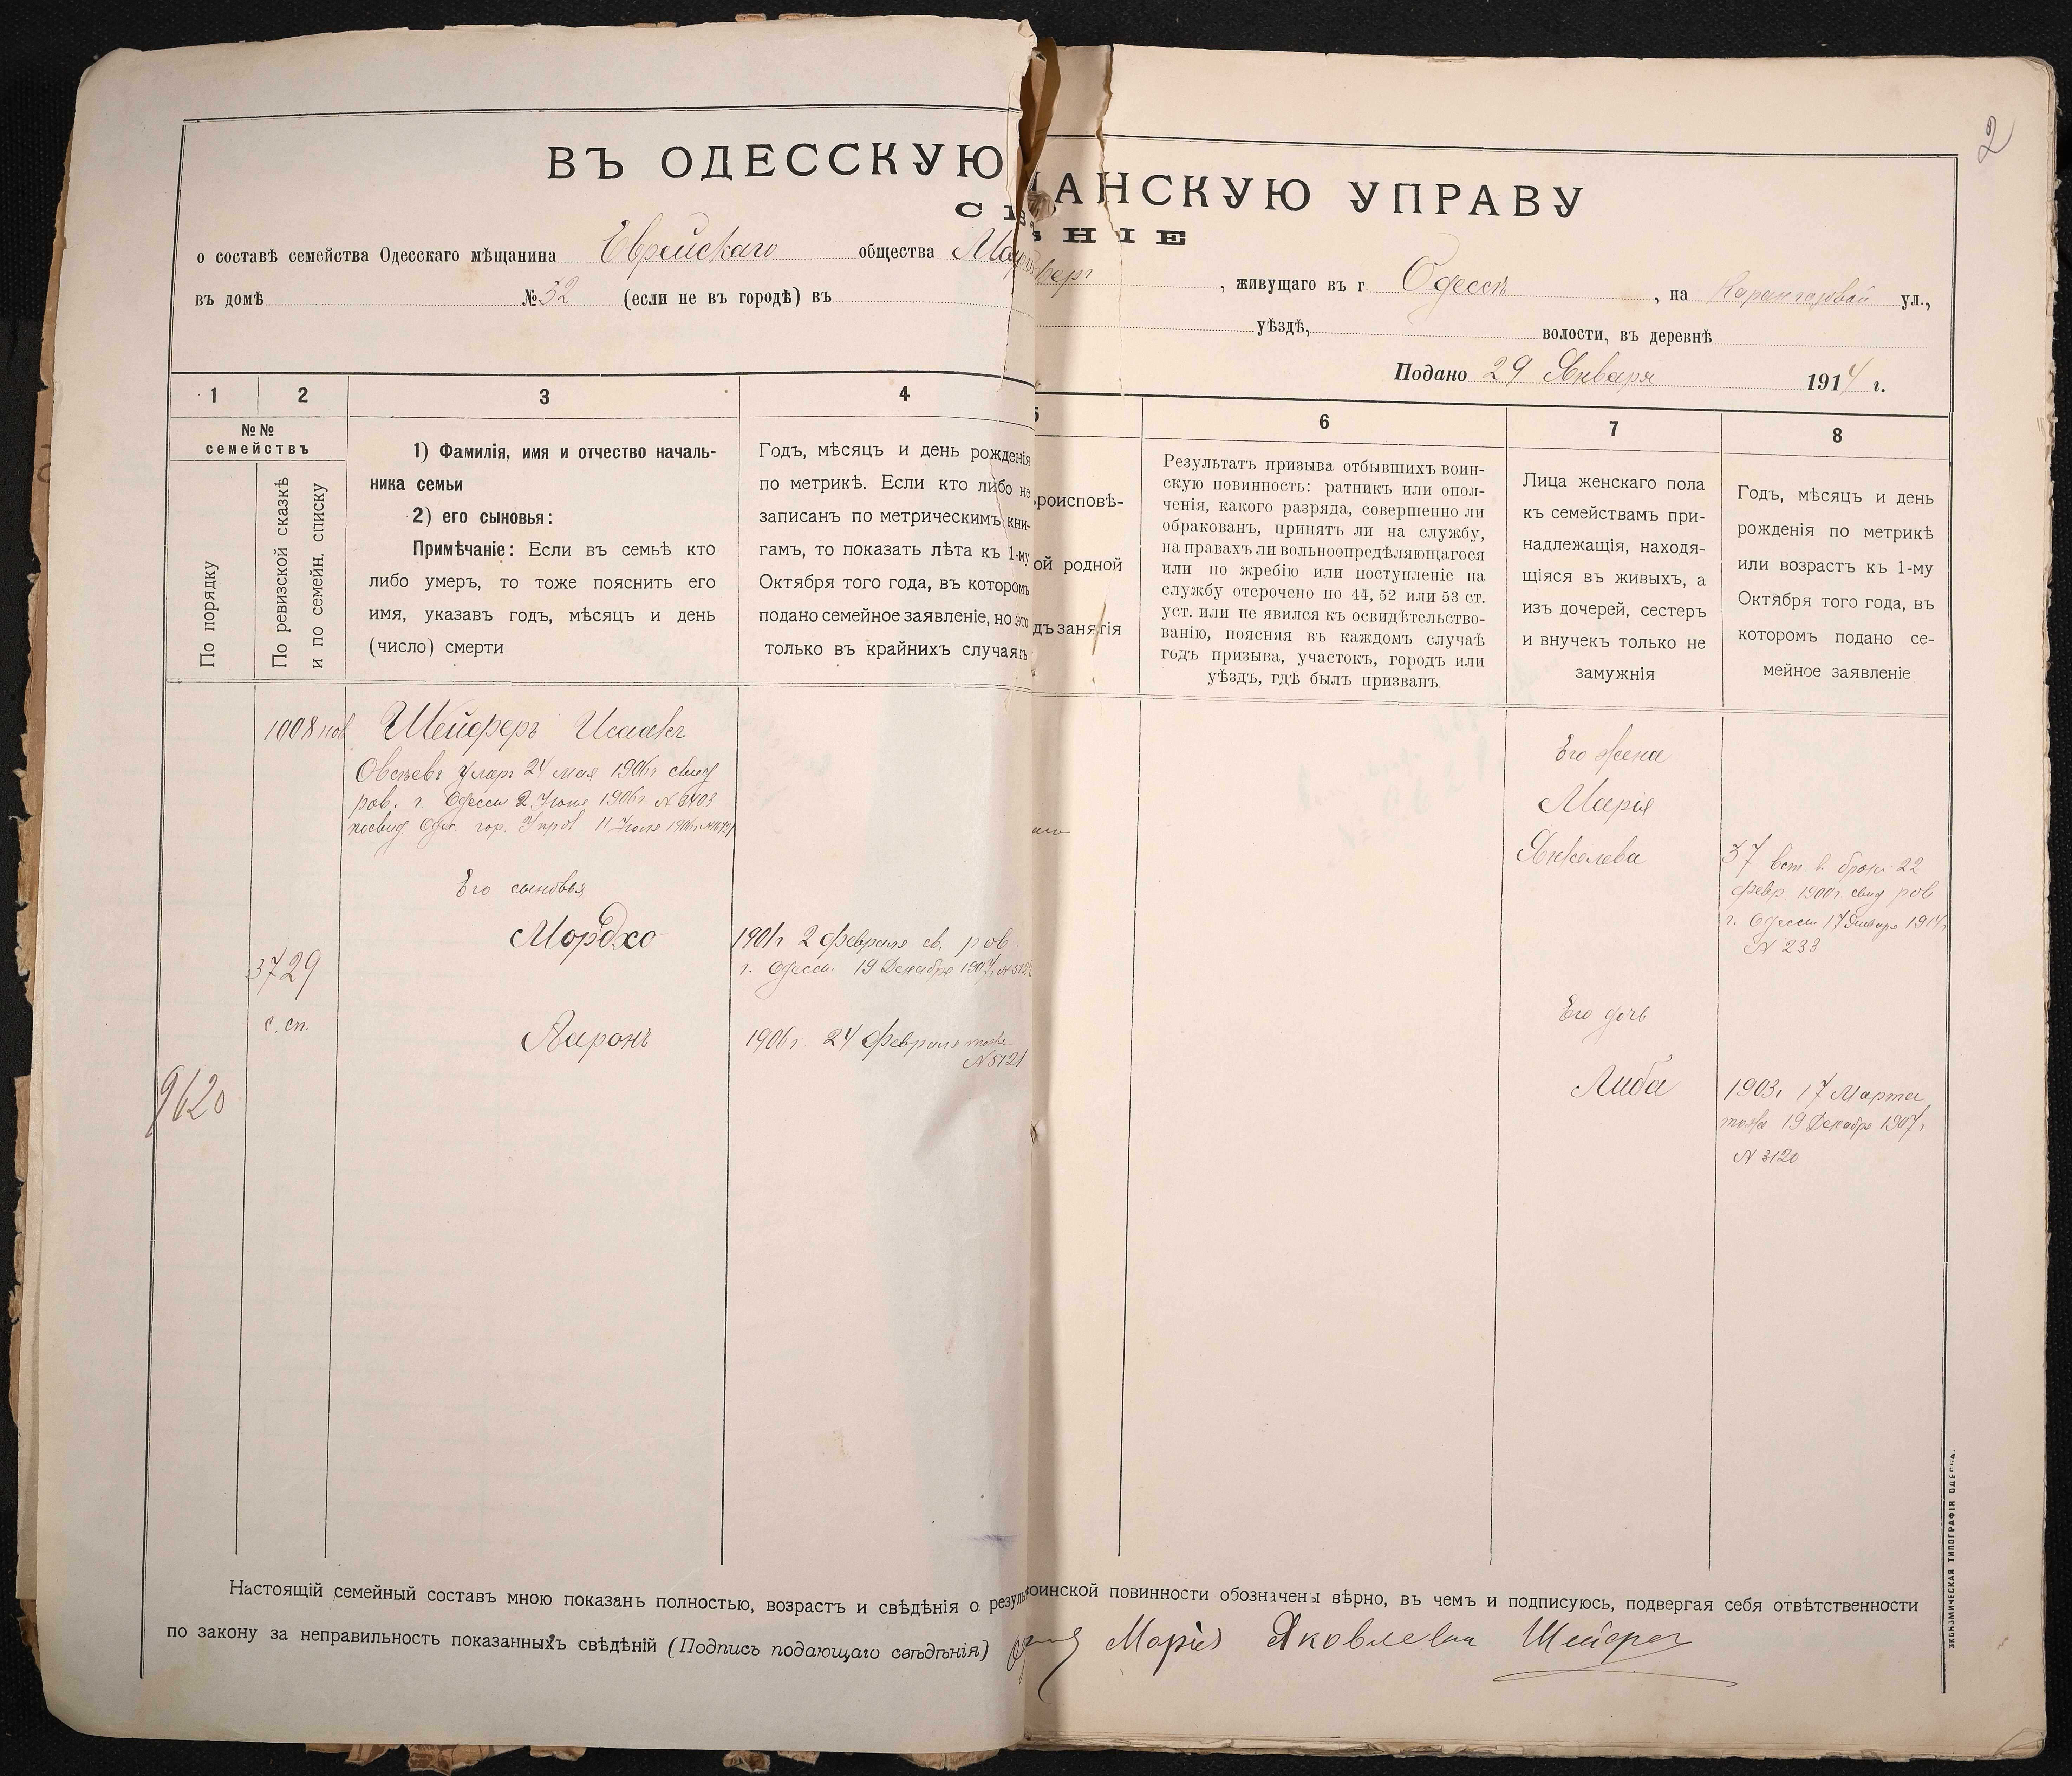 2
ВЪ ОДЕССКУЮ
ЩАНСКУЮ УПРАВУ
НІЕ
о составѣ семейства Одесскаго мѣщанина Еврейскаго общества
, живущаго въ г Одессѣ, на Карантинной ул.,
въ домѣ № 32 (если не въ городѣ) въ
уѣздѣ, волости, въ деревнѣ
Подано 29 Января 1914 г.
1 2 3 4
5 6 7 8
№№
семействъ
По порядку
По ревизской сказкѣ
и по семейн. списку
1) Фамилія, имя и отчество началь-
ника семьи
2) его сыновья:
Примѣчаніе: Если въ семьѣ кто
либо умеръ, то тоже пояснить его
имя, указавъ годъ, мѣсяцъ и день
(число) смерти
Годъ, мѣсяцъ и день рожденія
по метрикѣ. Если кто либо не
записанъ по метрическимъ кни-
гамъ, то показать лѣта къ 1-му
Октября того года, въ которомъ
подано семейное заявленіе, но это
только въ крайнихъ случаяхъ
роисповѣ-
ой родной
дъ занятія
Результатъ призыва отбывшихъ воин-
скую повинность: ратникъ или опол-
ченія, какого разряда, совершенно ли
обракованъ, принятъ ли на службу,
на правахъ ли вольноопредѣляющагося
или по жребію или поступленіе на
службу отсрочено по 44, 52 или 53 ст.
уст. или не явился къ освидѣтельство-
ванію, поясняя въ каждомъ случаѣ
годъ призыва, участокъ, городъ или
уѣздъ, гдѣ былъ призванъ.
Лица женскаго пола
къ семействамъ при-
надлежащія, находя-
щіяся въ живыхъ, а
изъ дочерей, сестеръ
и внучекъ только не
замужнія
Годъ, мѣсяцъ и день
рожденія по метрикѣ
или возрастъ къ 1-му
Октября того года, въ
которомъ подано се-
мейное заявленіе
1008 нов
Шейферъ Исаакъ
Овсѣевъ умер 24 мая 1906 г свид
рав. г. Одессы 2 Іюня 1906 г № 3403
Одес. гор. Упров 11 Іюля 1906 г
Его сыновья
Мордхо
1901 г 2 февраля св. рав
г. Одессы 19 Декабря 1907 г
3729
с. сп.
Ааронъ
1906 г 24 февраля тоже
№ 5121
9620
Его жена
Марія
Янкелева
37 вст. в бракъ 22
февр 1900 г свид рав
г. Одессы 17 Января 1914 г
№ 233
Его дочь
Либа
1903 г 17 Марта
тоже 19 Декабря 1907 г
№ 3120
Настоящій семейный составъ мною показанъ полностью, возрастъ и свѣдѣнія о резуль
воинской повинности обозначены вѣрно, въ чемъ и подписуюсь, подвергая себя отвѣтственности
по закону за неправильность показанныхъ свѣдѣній (Подпись подающаго свѣдѣнія)
Марія Яковлевна Шейфер
ЭКОНОМИЧЕСКАЯ ТИПОГРАФІЯ ОДЕССА.